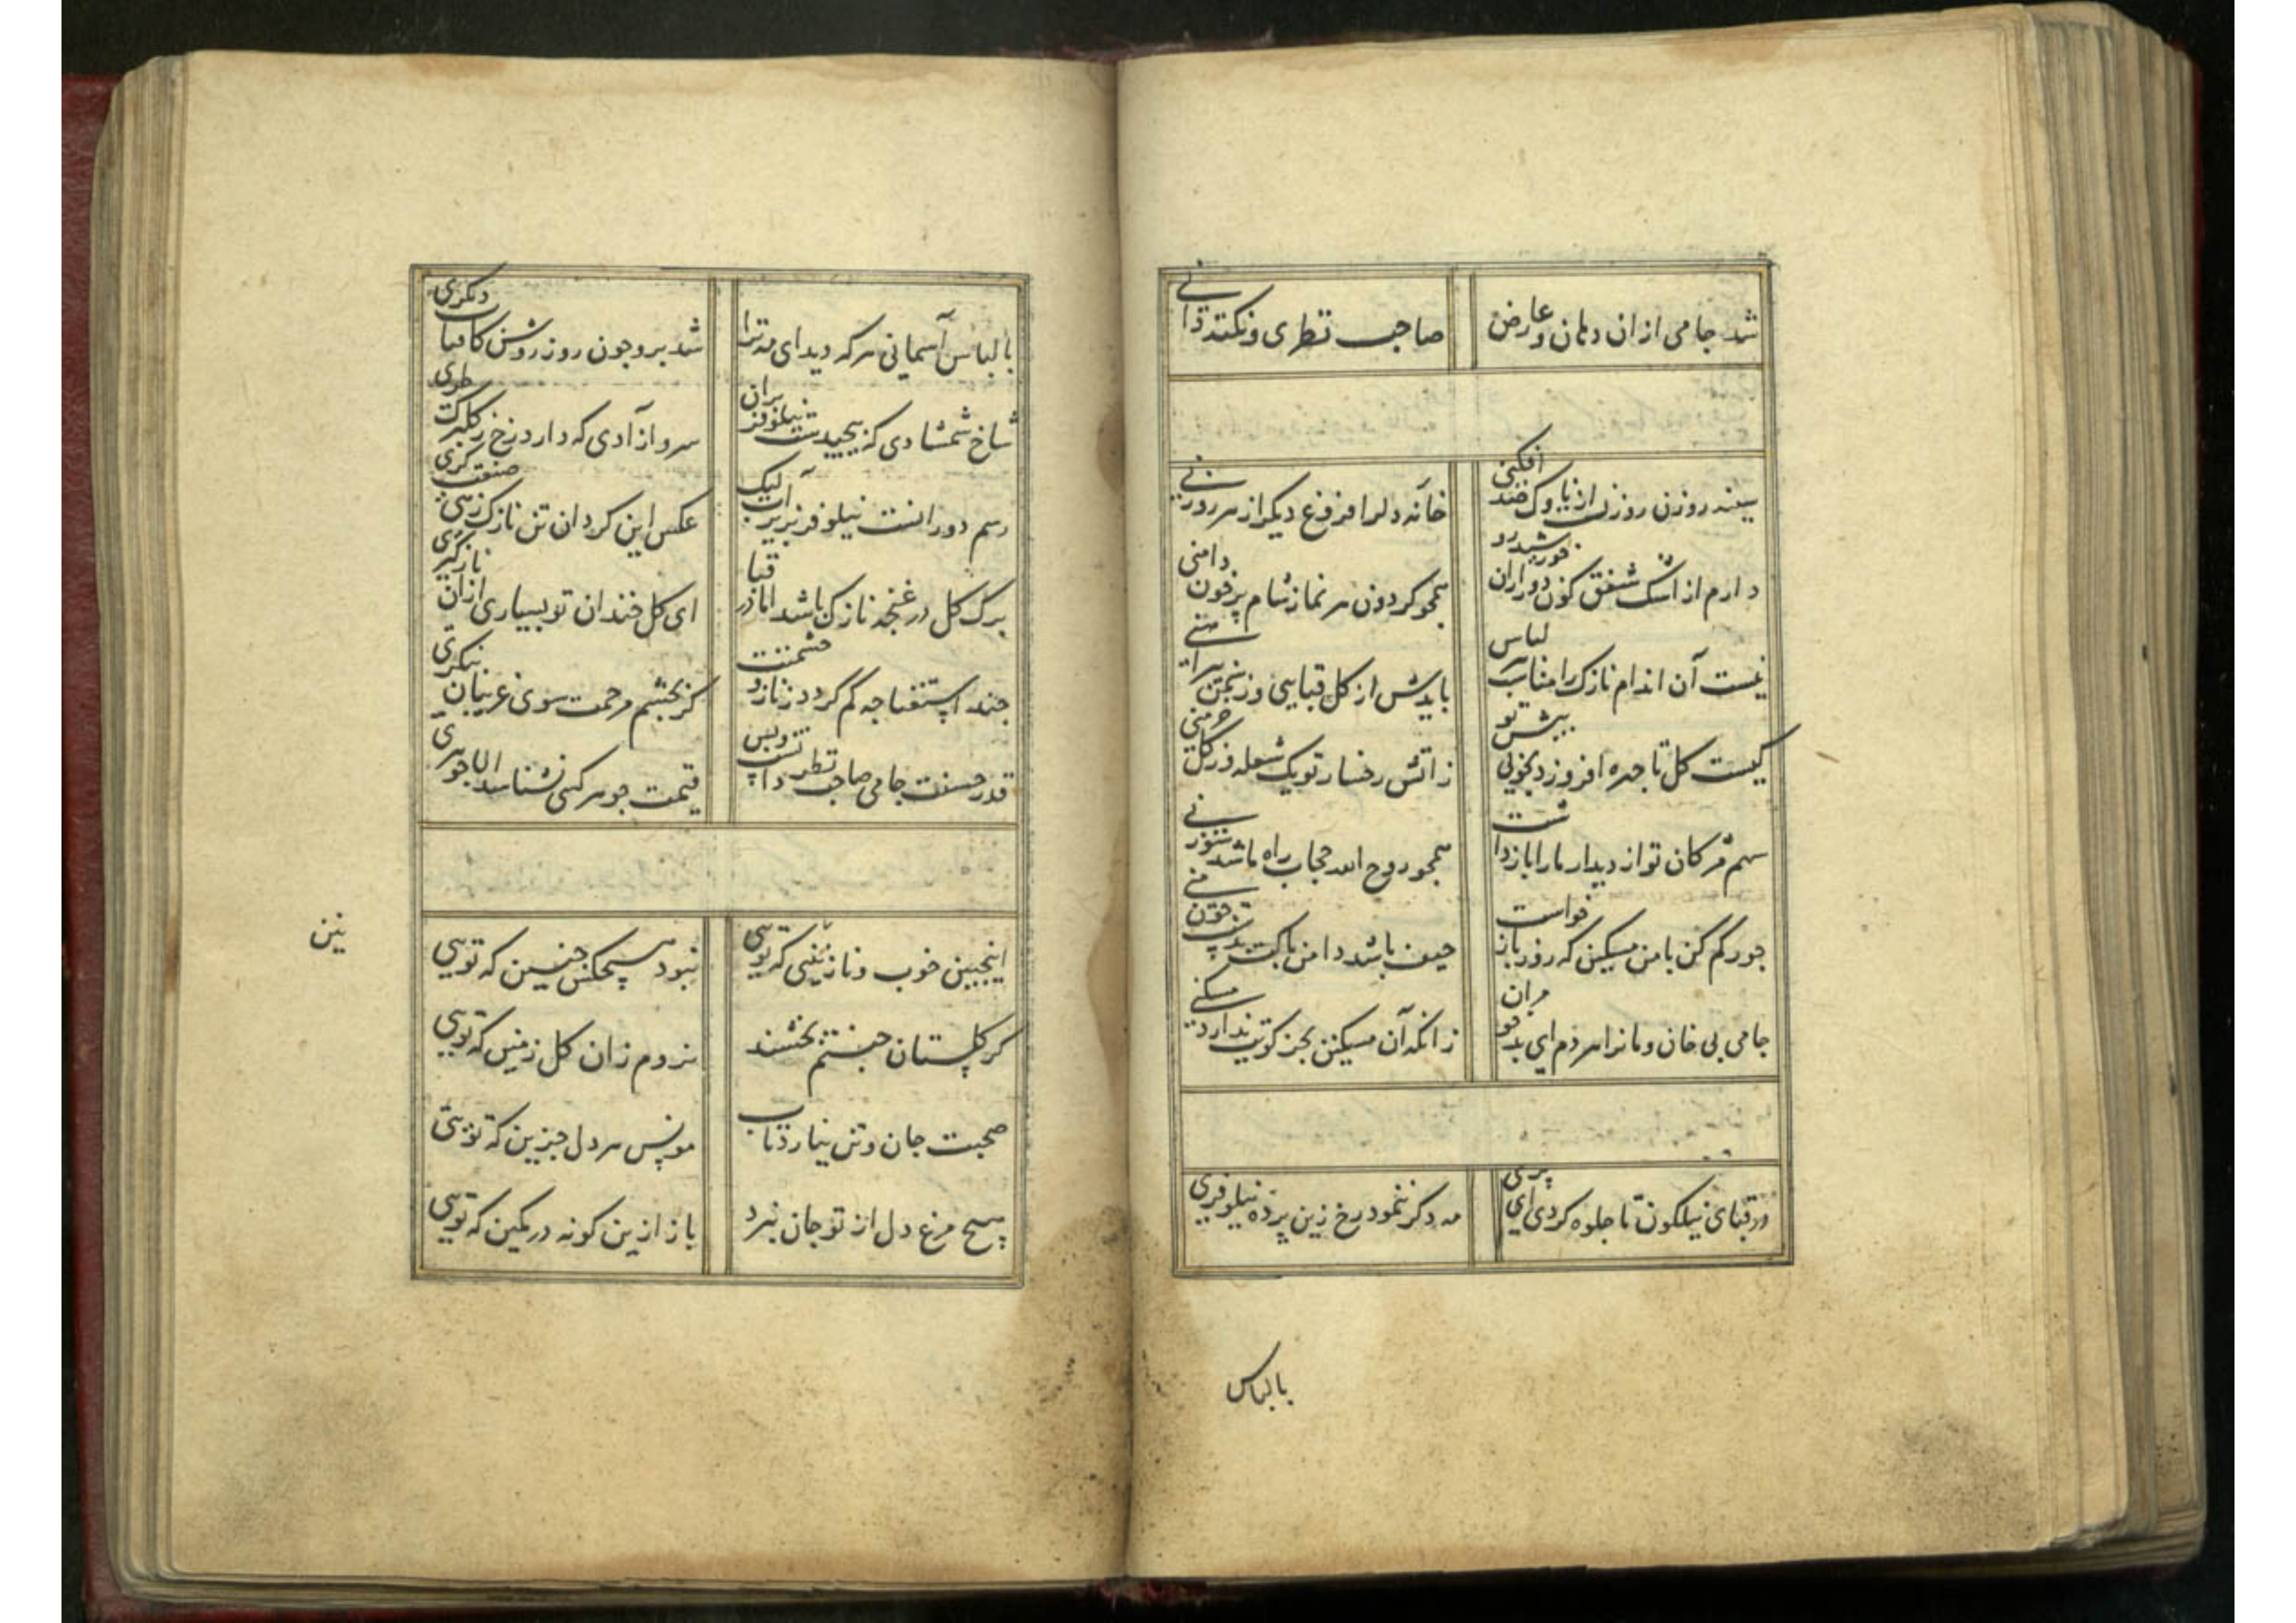 شد جامی از ان دهان و عارض صاحب نظری و نکته دانی
سینه روزن روزن از ناوک فکنی خانه دلرا فروغ دیکر از هر روزنی
دارم از اشک شفق کون دور از ان خورشید رو همجو کردون هر نماز شام پر خون دامنی
نیست آن اندام نازک را مناسب هر لباس بایدش از کل قبایی وز سمن پیراهنی
کیست کل تا جهره افروزد بخوبی پیش تو ز اتش رخسار تو یک شعله وز کل خرمنی
سهم مژکان تو از دیدار ما را باز داشت همجو روح الله حجاب راه ما شد سوزنی
جور کم کن با من مسکین که روز بازخواست حیف باشد دامن باکت بدست جون منی
جامی بی خان و مانرا هر دم ای بدخو مران زانکه آن مسکین بجز کویت ندارد مسکنی
در قبای نیلکون تا جلوه کردی ای پری مه دکر ننمود رخ زین پرده نیلوفری
با لباس
با لباس آسمانی هر که دید ای مه ترا شد برو جون روز روشن کافتاب دیکری
شاخ شمشادی که پیجیدست نیلوفر بران سرو آزادی که دارد رخ ز کلبرک طری
رسم دورانست نیلوفر بزیر آب لیک عکس این کرد ان تن نازک زهی صنعت کری
برک کل در غنجه نازک باشد اما در قبا ای کل خندان تو بسیاری از ان نازکتری
جند استغنا جه کم کردد ز ناز و حشمتت کر بجشم مرحمت سوی غریبان بنکری
قدر حسنت جامی صاحب نظر داند و بس قیمت جوهر کسی نشناسد الا جوهری
اینجنین خوب و نازنینی که تویی نبود هیجکس جنین که تویی
کر کلستان جنتم بخشند نروم زان کل زمین که تویی
صحبت جان و تن نیارد تاب مونس هر دل حزین که تویی
هیج مرغ دل از تو جان نبرد باز ازین کونه در کمین که تویی